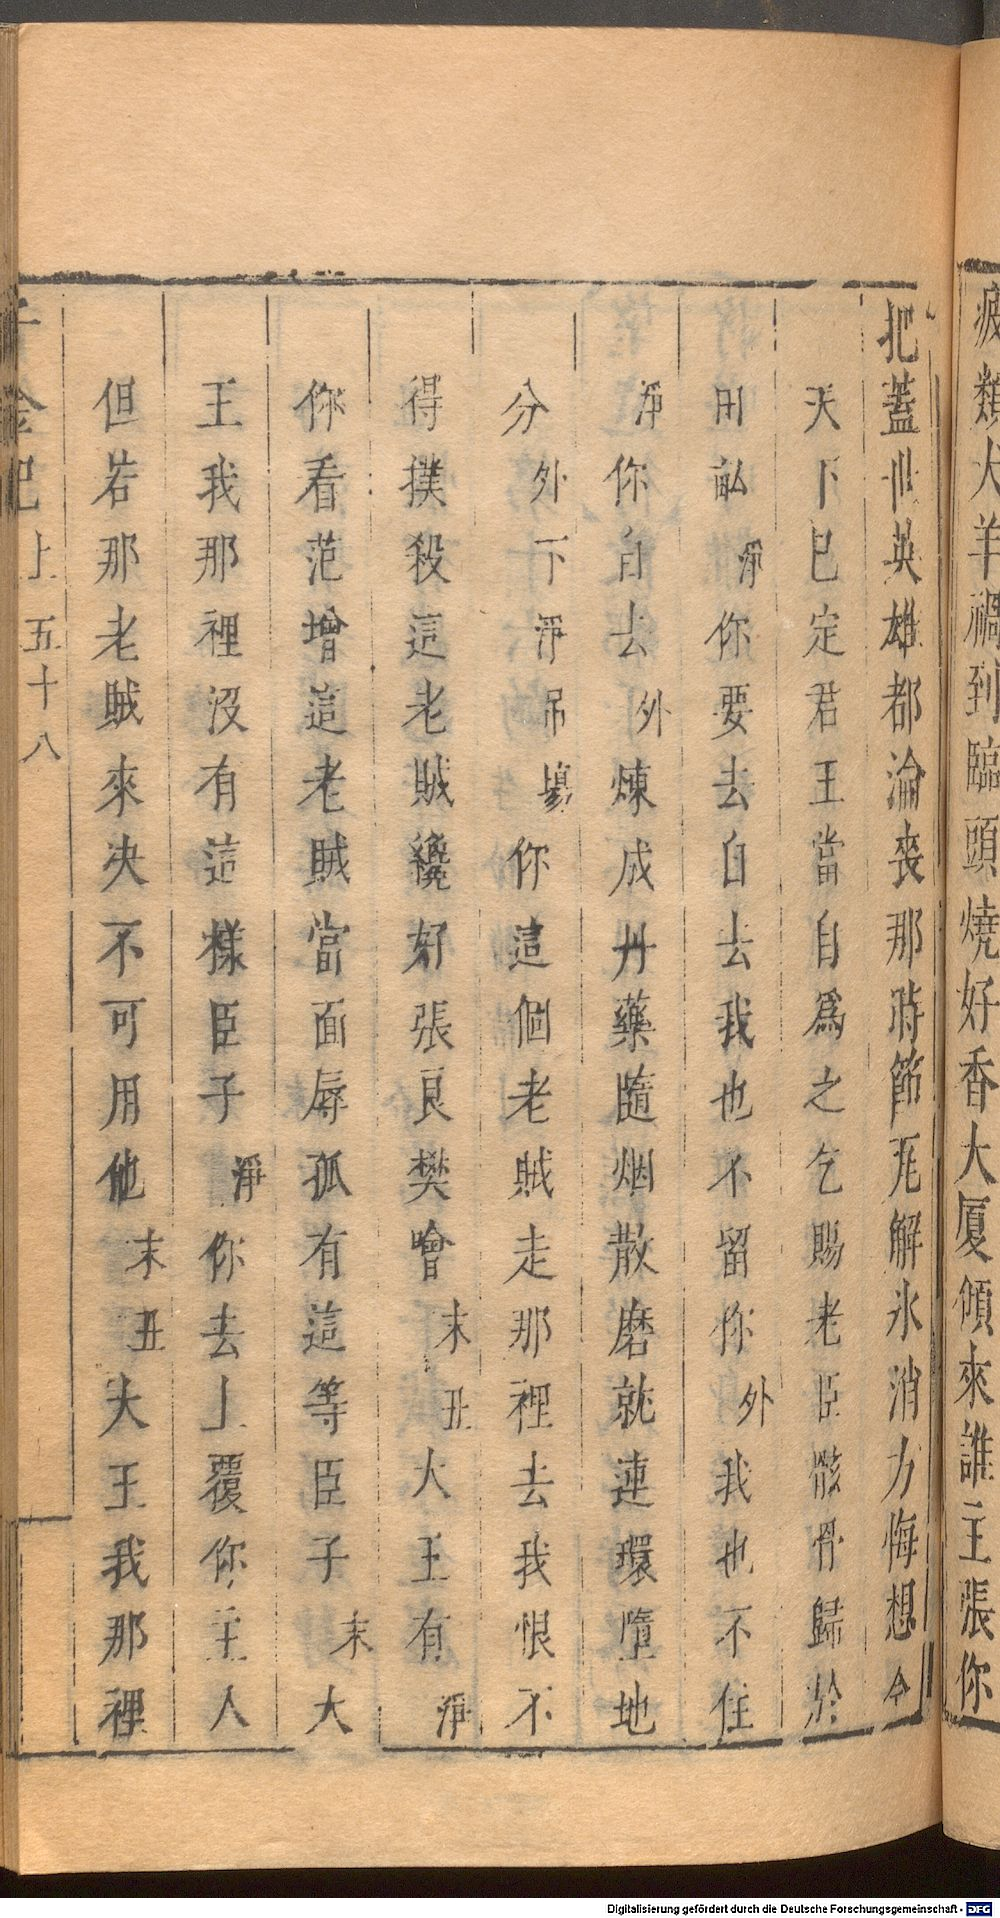 疲類犬羊禍到臨頭燒好香大厦傾來誰主張你
把蓋世英雄都淪丧那時節瓦解氷消力悔想今
天下已定君王當自爲之乞賜老臣骸骨歸於
田畝淨你要去自去我也不留你外我也不住
淨你自去外煉成丹藥隨烟散磨就連環墮地
分外下淨吊塲你這個老賊走那裡去我恨不
得撲殺這老賊纔好張良樊噲末丑大王有淨
你看范增這老賊當面辱孤有這等臣子末大
王我那裡沒有這樣臣子淨你去上覆你主人
但若那老賊來决不可用他末丑大王我那裡
千金記上五十八
Digitalisierung gefördert durch die Deutsche Forschungsgemeinschaft - DFG